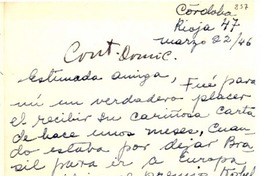 237
Córdoba
Rioja 47
marzo 22/46
Cont. Domic.
Estimada amiga, Fué para
mí un verdadero placer
el recibir su cariñosa carta
de hace unos meses, Cuan
do estaba por dejar Bra
sil para ir a Europa
premio Nobel